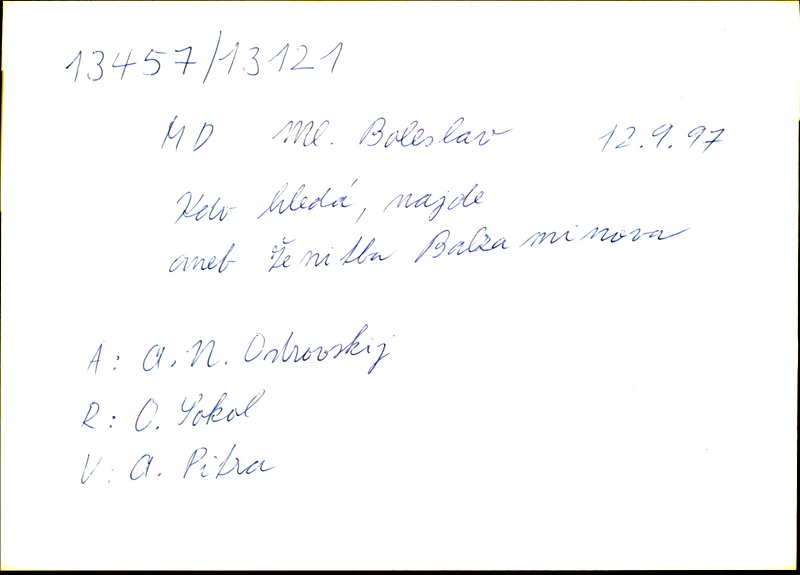 13457/13121
MD Ml. Boleslav 12.9.97
Kdo hledá, najde
aneb Ženitba Balzaminova
A: A. N. Ostrovskij
R: O. Sokol
V: A. Pitra